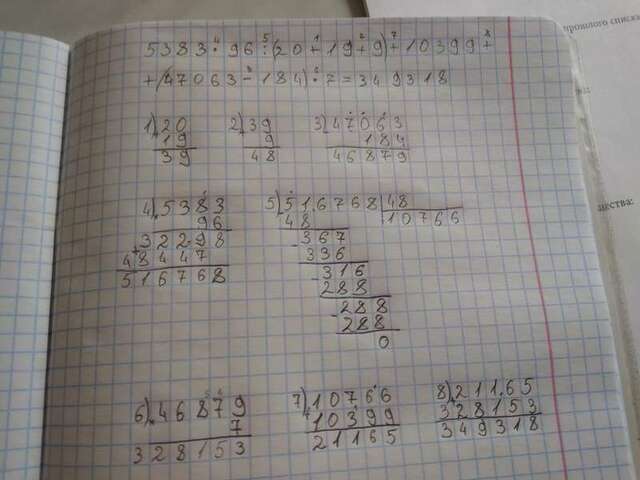 5383·96:(20+19+9)+10399+
+(47063-184)·7=349318
1) 20
+ 19
39
2) 39
+ 9
48
3) 47063
- 184
46879
4) 5383
· 96
32298
+ 48447
516768
5) 516768 | 48
48 | 10766
- 367
336
- 316
288
- 288
288
0
6) 46879
· 7
328153
7) 10766
+ 10399
21165
8) 21165
+ 328153
349318
прошлого списка
щества: